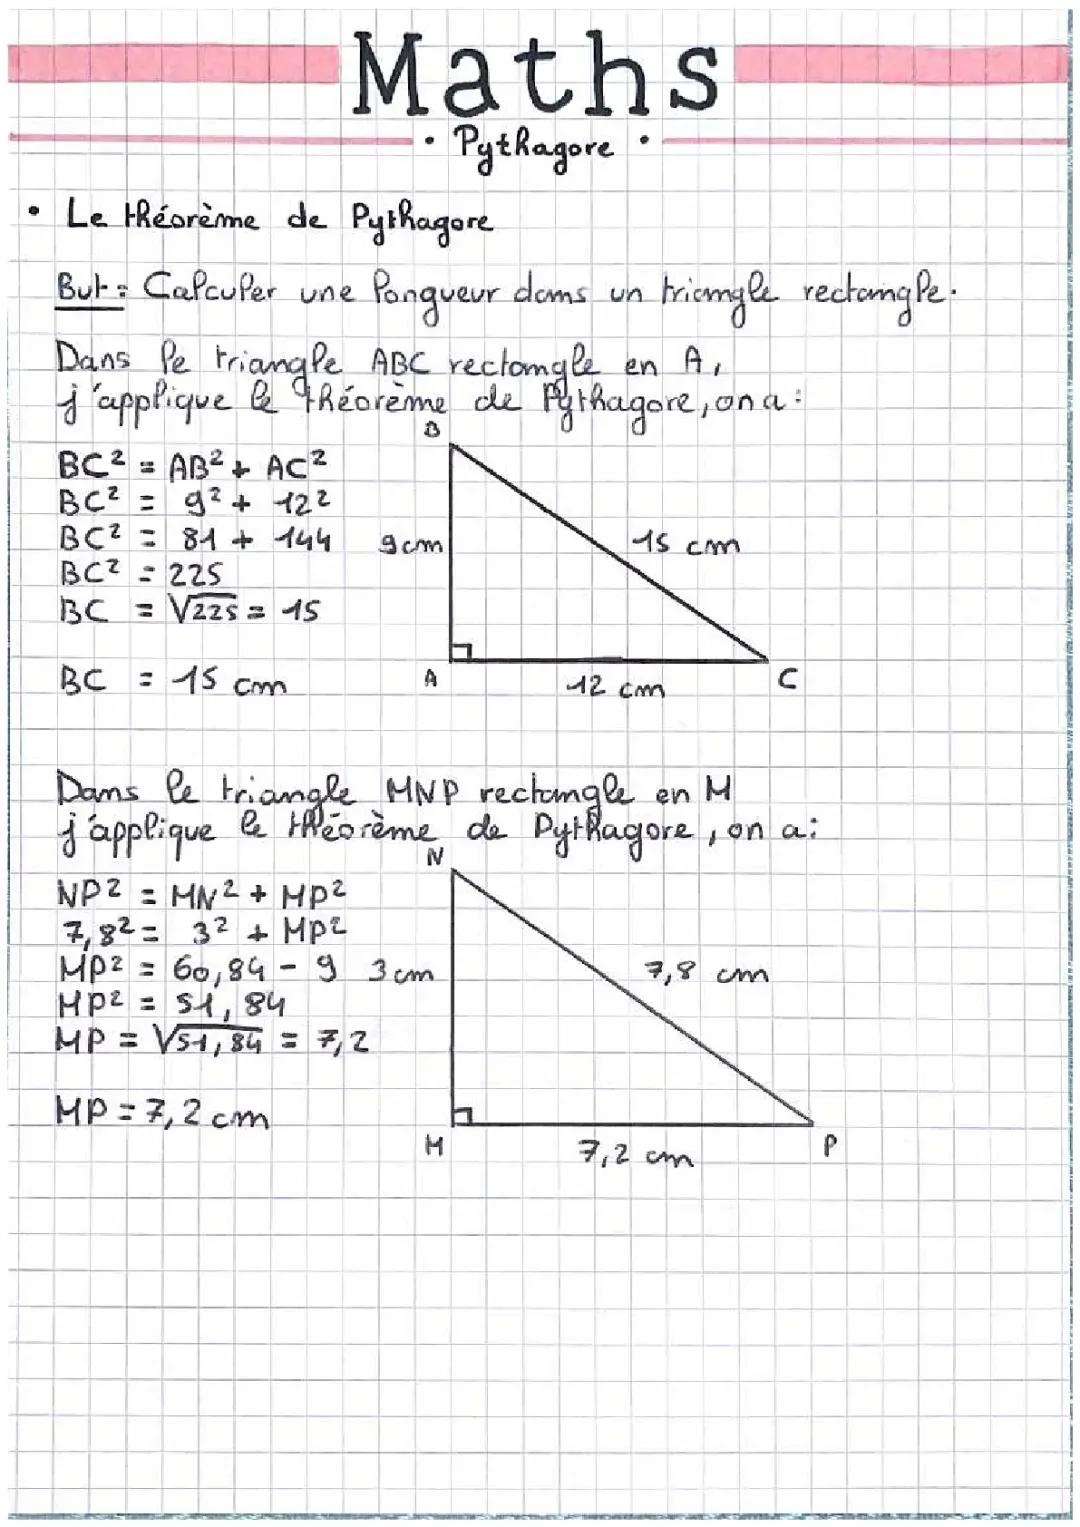 Maths
• Pythagore •
• Le théorème de Pythagore
But : Calculer une longueur dans un triangle rectangle.
Dans le triangle ABC rectangle en A,
j'applique le théorème de Pythagore, on a :
B
BC² = AB² + AC²
BC² = 9² + 12²
BC² = 81 + 144
9cm
15 cm
BC² = 225
BC = √225 = 15
BC = 15 cm
A
12 cm
C
Dans le triangle MNP rectangle en M
j'applique le théorème de Pythagore, on a :
N
NP² = MN² + MP²
7,8² = 3² + MP²
MP² = 60,84 - 9
3 cm
7,8 cm
MP² = 51,84
MP = √51,84 = 7,2
MP = 7,2 cm
M
7,2 cm
P